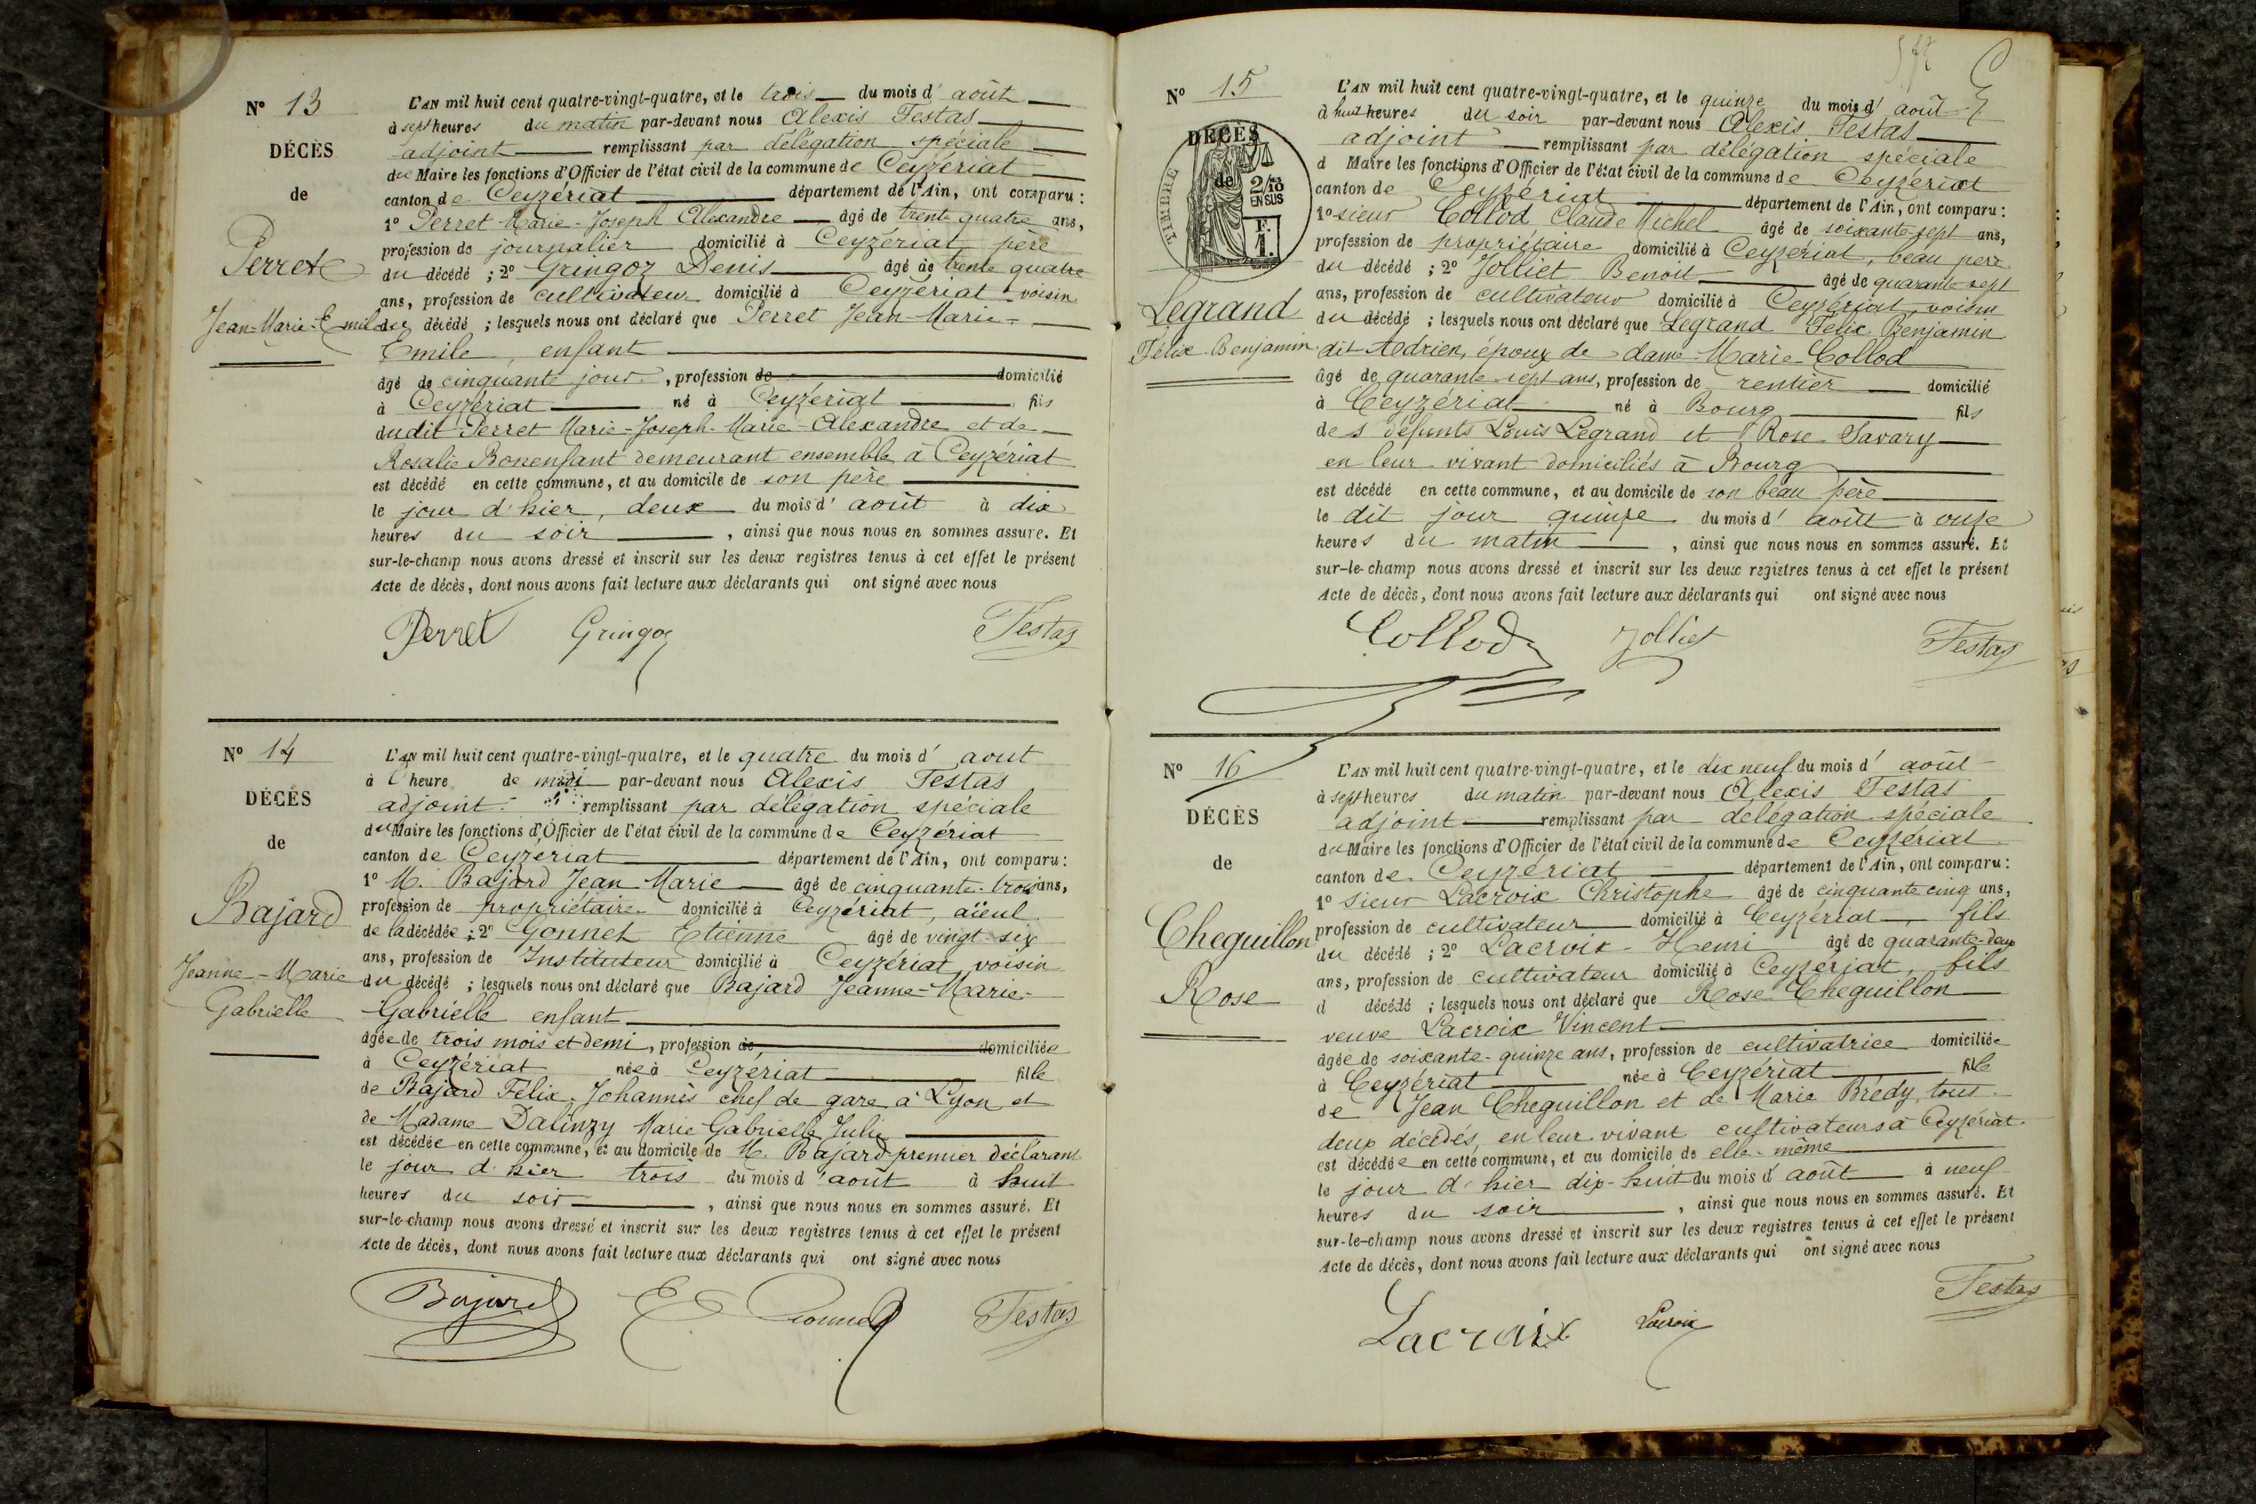 N° 13
DÉCÈS
de
Perret
Jean-Marie-Emile
L'AN mil huit cent quatre-vingt-quatre, et le trois du mois d' août
à sept heures du matin par-devant nous Alexis Festas
adjoint remplissant par délégation spéciale
du Maire les fonctions d'Officier de l'état civil de la commune de Ceyzériat
canton de Ceyzériat département de l'Ain, ont comparu :
1° Perret Marie-Joseph Alexandre âgé de trente quatre ans,
profession de journalier domicilié à Ceyzériat, père
du décédé ; 2° Gringoz Denis âgé de trente quatre
ans, profession de cultivateur domicilié à Ceyzériat voisin
du décédé ; lesquels nous ont déclaré que Perret Jean-Marie-
Emile, enfant
âgé de cinquante jours, profession de domicilié
à Ceyzériat né à Ceyzériat fils
dudit Perret Marie-Joseph-Marie-Alexandre et de
Rosalie Bonenfant demeurant ensemble à Ceyzériat
est décédé en cette commune, et au domicile de son père
le jour d'hier, deux du mois d' août à dix
heures du soir, ainsi que nous nous en sommes assuré. Et
sur-le-champ nous avons dressé et inscrit sur les deux registres tenus à cet effet le présent
Acte de décès, dont nous avons fait lecture aux déclarants qui ont signé avec nous
Perret Gringoz Festas
N° 14
DÉCÈS
de
Bajard
Jeanne-Marie
Gabrielle
L'AN mil huit cent quatre-vingt-quatre, et le quatre du mois d' aout
à l'heure de midi par-devant nous Alexis Festas
adjoint remplissant par délégation spéciale
du Maire les fonctions d'Officier de l'état civil de la commune de Ceyzériat
canton de Ceyzériat département de l'Ain, ont comparu :
1° M. Bajard Jean Marie âgé de cinquante-trois ans,
profession de propriétaire domicilié à Ceyzériat, aïeul
de la décédée ; 2° Gonnet Etienne âgé de vingt-six
ans, profession de Instituteur domicilié à Ceyzériat voisin
du décédé ; lesquels nous ont déclaré que Bajard Jeanne-Marie-
Gabrielle enfant
âgée de trois mois et demi, profession de domiciliée
à Ceyzériat née à Ceyzériat fille
de Bajard Félix-Johannès chef de gare à Lyon et
de Madame Dalinzy Marie Gabrielle Julie
est décédée en cette commune, et au domicile de M. Bajard premier déclarant
le jour d'hier trois du mois d' août à huit
heures du soir, ainsi que nous nous en sommes assuré. Et
sur-le-champ nous avons dressé et inscrit sur les deux registres tenus à cet effet le présent
Acte de décès, dont nous avons fait lecture aux déclarants qui ont signé avec nous
Bajard E Gonnet Festas
N° 15
DÉCÈS
de
TIMBRE
2/10
EN SUS
F.
1.
Legrand
Félix Benjamin
L'AN mil huit cent quatre-vingt-quatre, et le quinze du mois d' août
à huit heures du soir par-devant nous Alexis Festas
adjoint remplissant par délégation spéciale
d Maire les fonctions d'Officier de l'état civil de la commune de Ceyzériat
canton de Ceyzériat département de l'Ain, ont comparu :
1° sieur Collod Claude Michel âgé de soixante-sept ans,
profession de propriétaire domicilié à Ceyzériat, beau père
du décédé ; 2° Jolliet Benoit âgé de quarante sept
ans, profession de cultivateur domicilié à Ceyzériat, voisin
du décédé ; lesquels nous ont déclaré que Legrand Felix Benjamin
dit Adrien, époux de dame Marie Collod
âgé de quarante sept ans, profession de rentier domicilié
à Ceyzériat né à Bourg fils
des défunts Louis Legrand et Rose Savary
en leur vivant domiciliés à Bourg
est décédé en cette commune, et au domicile de son beau père
le dit jour quinze du mois d' août à onze
heures du matin, ainsi que nous nous en sommes assuré. Et
sur-le-champ nous avons dressé et inscrit sur les deux registres tenus à cet effet le présent
Acte de décès, dont nous avons fait lecture aux déclarants qui ont signé avec nous
Collod Jolliet Festas
N° 16
DÉCÈS
de
Cheguillon
Rose
L'AN mil huit cent quatre-vingt-quatre, et le dix neuf du mois d' août
à sept heures du matin par-devant nous Alexis Festas
adjoint remplissant par délégation spéciale
du Maire les fonctions d'Officier de l'état civil de la commune de Ceyzériat
canton de Ceyzériat département de l'Ain, ont comparu :
1° sieur Lacroix Christophe âgé de cinquante cinq ans,
profession de cultivateur domicilié à Ceyzériat, fils
du décédé ; 2° Lacroix Henri âgé de quarante-deux
ans, profession de cultivateur domicilié à Ceyzériat, fils
d décédé ; lesquels nous ont déclaré que Rose Cheguillon
veuve Lacroix Vincent
âgée de soixante-quinze ans, profession de cultivatrice domiciliée
à Ceyzériat née à Ceyzériat fille
de Jean Cheguillon et de Marie Brédy, tous
deux décédés, en leur vivant cultivateurs à Ceyzériat
est décédée en cette commune, et au domicile de elle-même
le jour d'hier dix-huit du mois d' août à neuf
heures du soir, ainsi que nous nous en sommes assuré. Et
sur-le-champ nous avons dressé et inscrit sur les deux registres tenus à cet effet le présent
Acte de décès, dont nous avons fait lecture aux déclarants qui ont signé avec nous
Lacroix Lacroix Festas